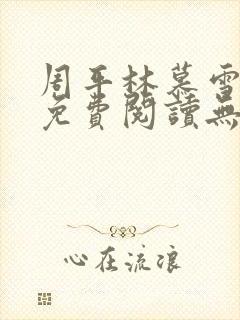 周平林慕雪
免費閱讀無
心在流浪